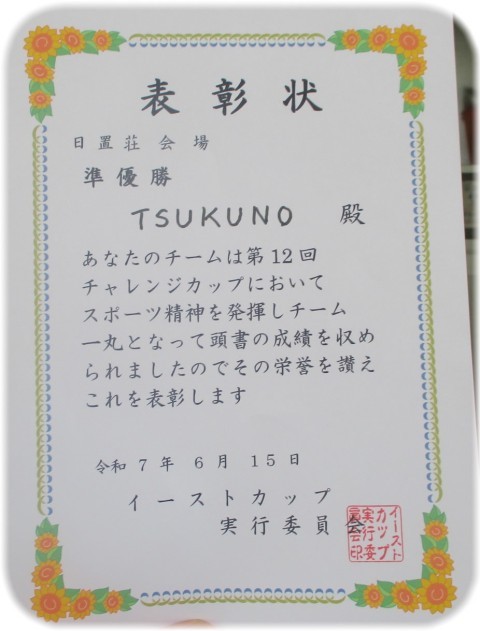 表彰状
日置荘会場
準優勝
TSUKUNO 殿
あなたのチームは第12回
チャレンジカップにおいて
スポーツ精神を発揮しチーム
一丸となって頭書の成績を収め
られましたのでその栄誉を讃え
これを表彰します
令和7年6月15日
イーストカップ
実行委員会
イースト
カップ
実行委
員会印